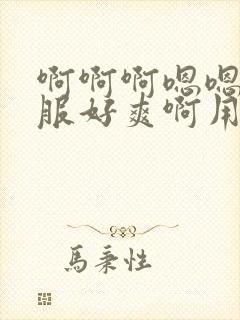 啊啊啊嗯嗯
服好爽啊用
馬秉性